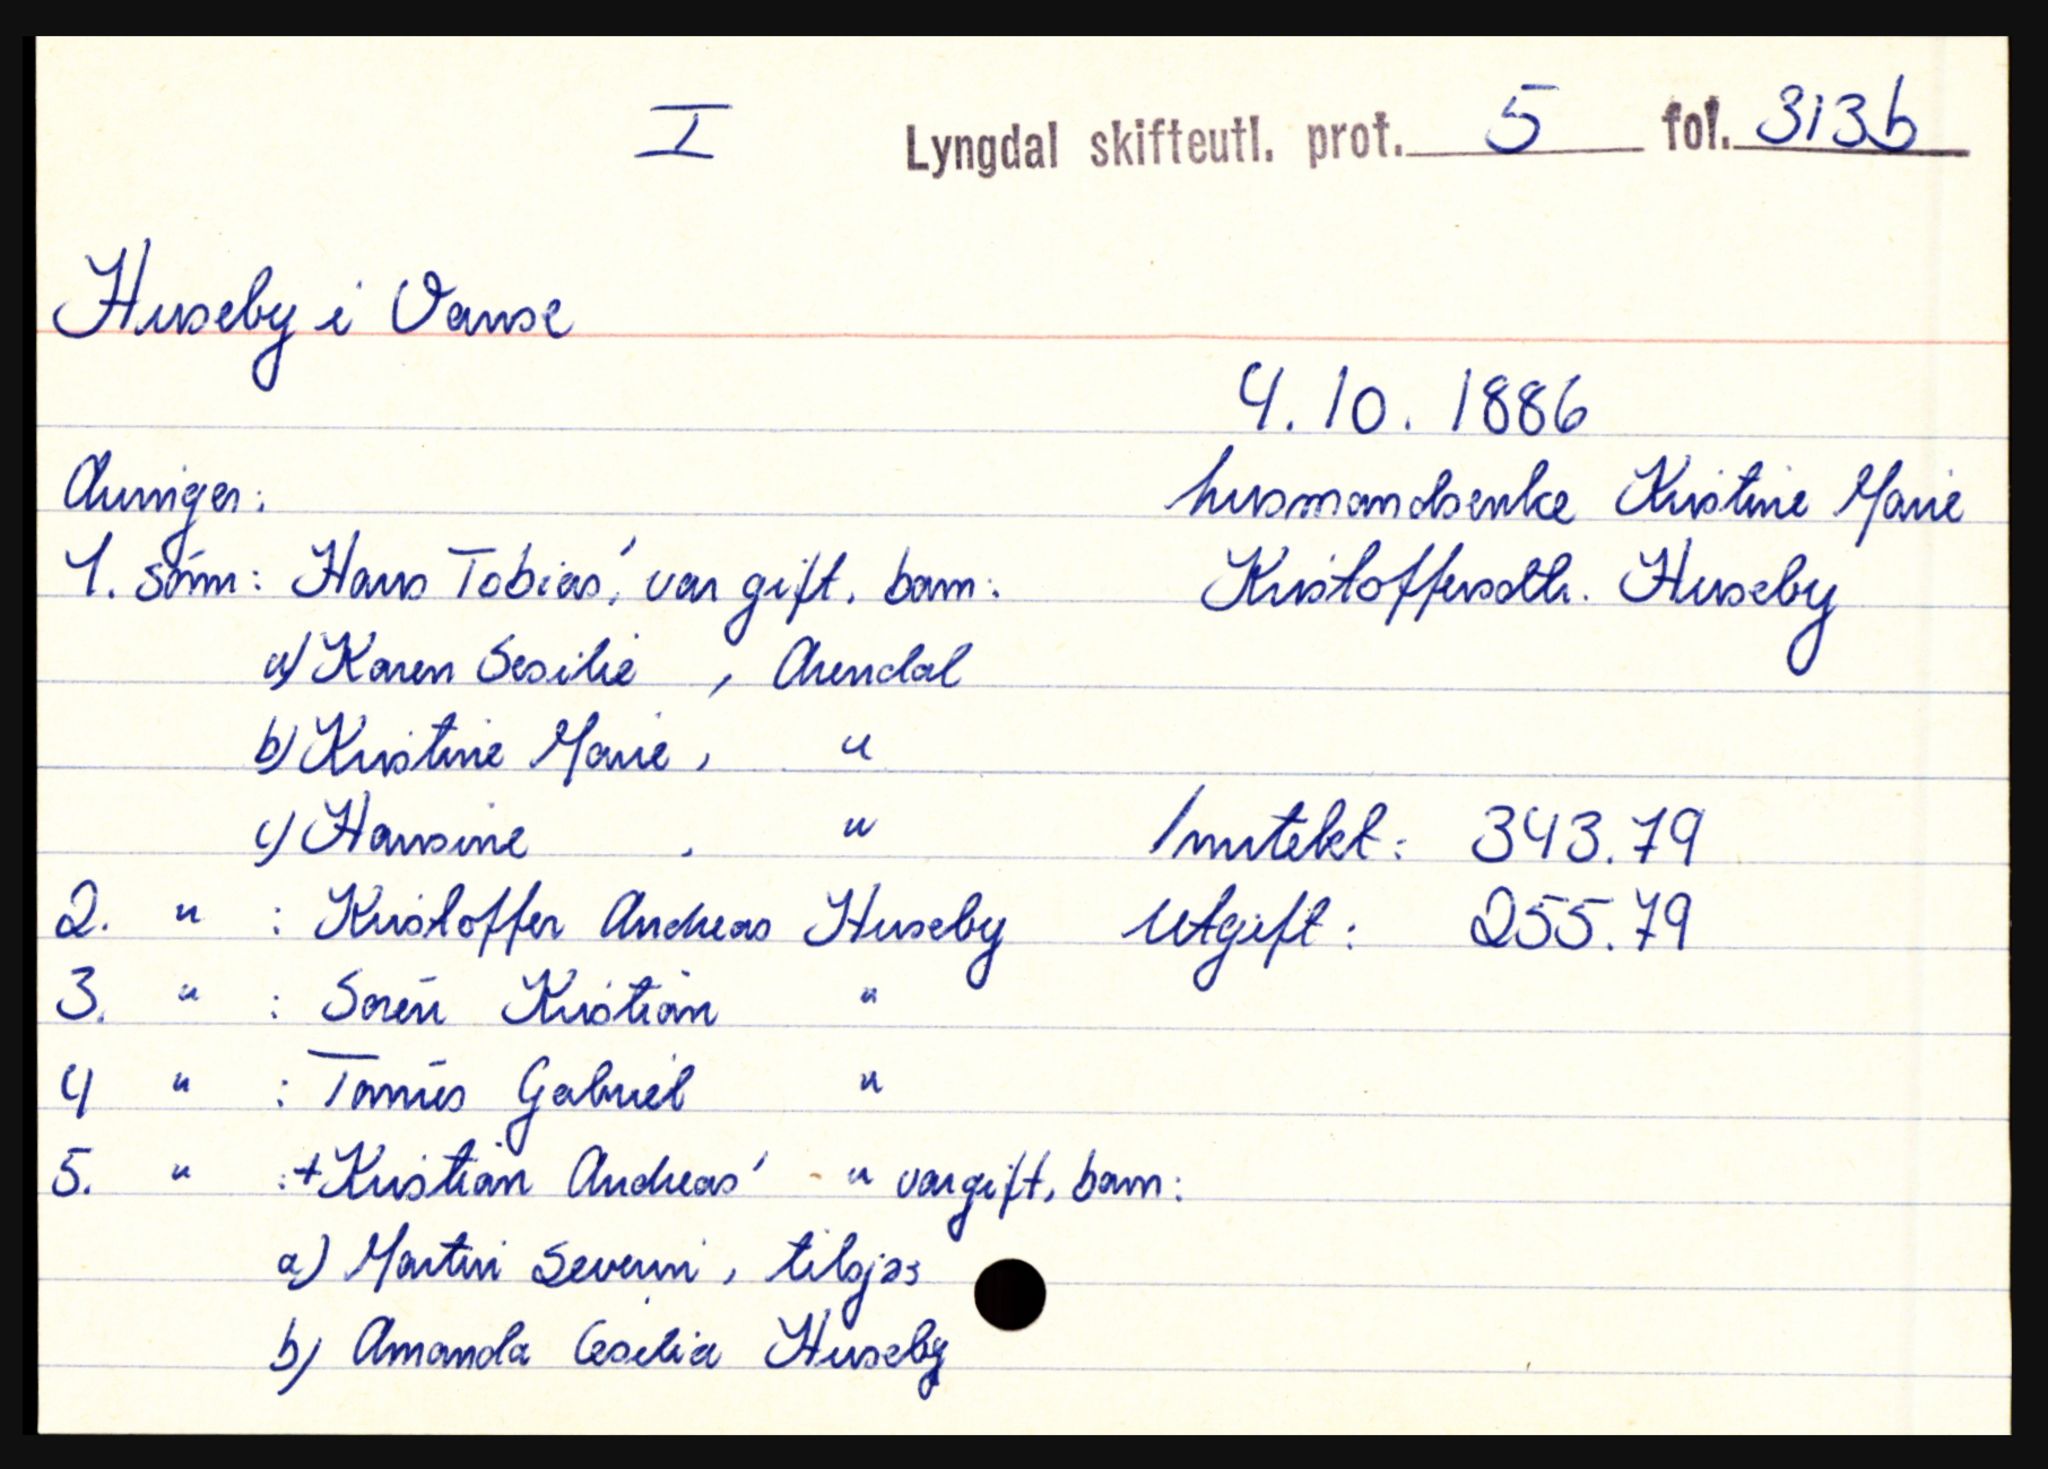 I Lyngdal skifteutl. prot. 5 fol. 313b
Huseby i Vanse
4.10.1886
Arvinger: husmandsenke Kristine Marie
1. sønn: Hans Tobias', var gift, barn: Kristoffersdtr. Huseby
a) Karen Sesilie, Arendal
b) Kristine Marie, "
c) Hansine, " Inntekt: 343.79
2. " : Kristoffer Andreas Huseby Utgift: 255.79
3. " : Soren Kristian "
4 " : Tønnes Gabriel "
5. " : + Kristian Andreas' - " var gift, barn:
a) Martin Severin, tilsjøs
b) Amanda Cesilia Huseby